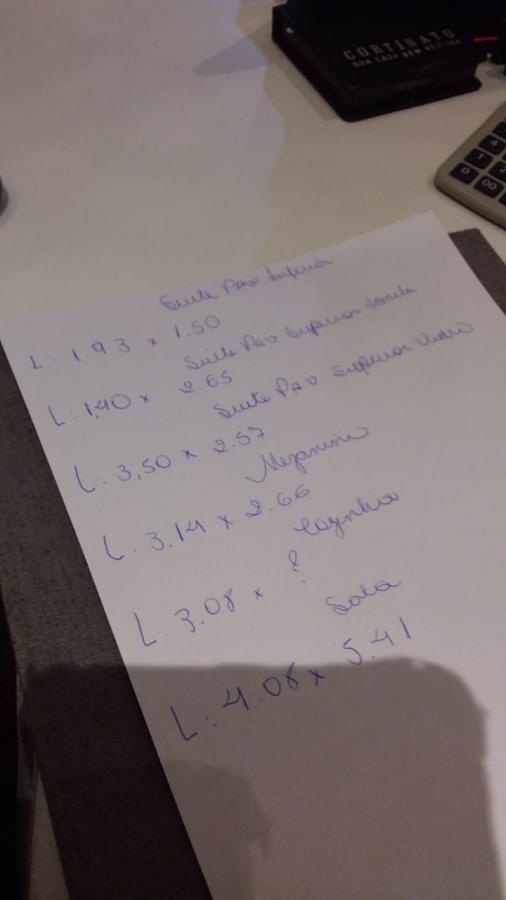 CORTINATO
SUA CASA BEM VESTIDA
1
4
0
00
Suite Pav Inferior
L: 1.93 x 1.50
Suite Pav Superior Janela
L: 1,40 x 2.65
Suite Pav. Superior Vidro
L: 3,50 x 2.57
Mezanino
L: 3.14 x 2.66
Cozinha
L: 3.08 x ?
Sala
L: 4.08 x 5.41